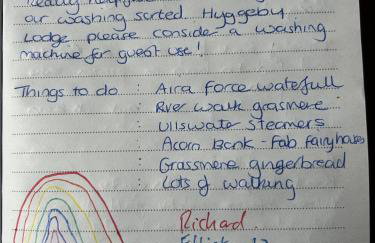 our washing sorted. Hyggeby
Lodge please consider a washing
machine for guest use!
Things to do : Aira Force watefull
: River walk grasmere
: Ullswater Steamers
: Acorn Bank - Fab fairyhouses
: Grassmere gingerbread
: Lots of walking
Richard